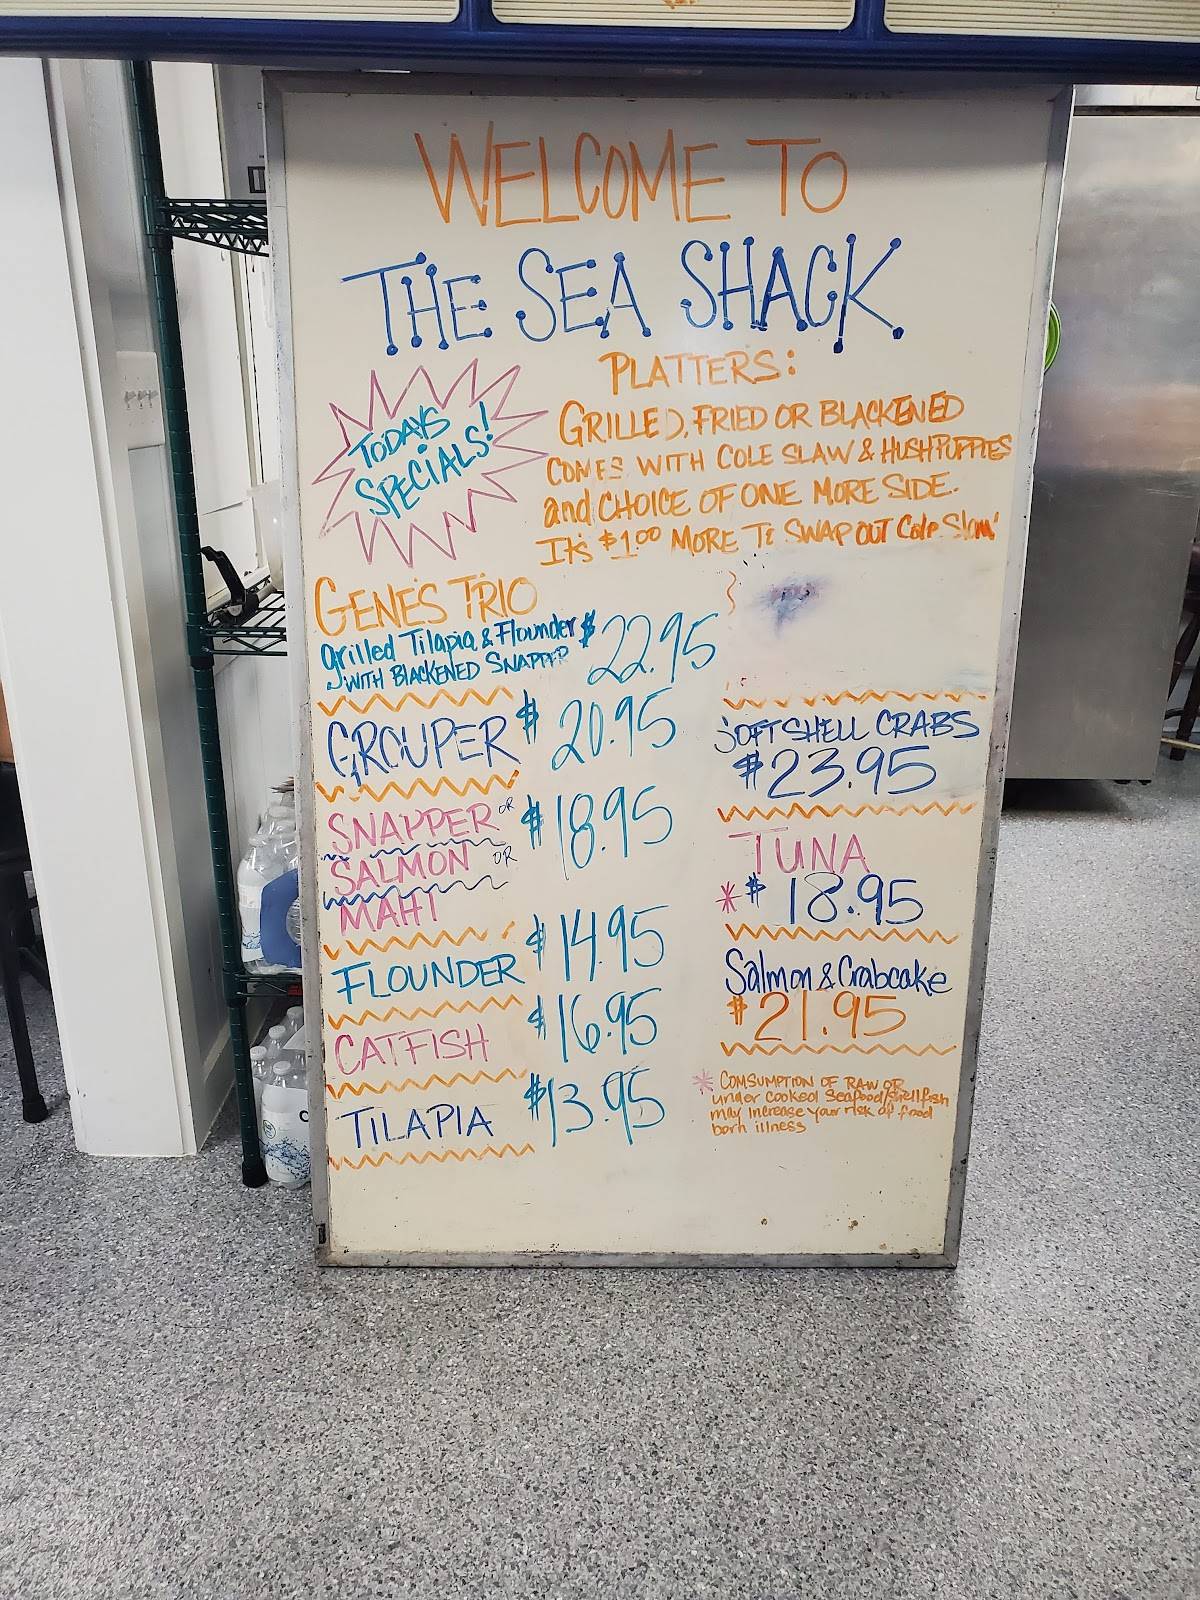 WELCOME TO
THE SEA SHACK
TODAYS
SPECIALS!
PLATTERS:
GRILLED, FRIED OR BLACKENED
COMES WITH COLE SLAW & HUSHPUPPIES
and CHOICE OF ONE MORE SIDE.
It's $1.00 MORE To SWAP OUT Cole Slaw!
GENE'S TRIO
grilled Tilapia & Flounder $22.95
WITH BLACKENED SNAPPER
GROUPER $20.95
SNAPPER OR $18.95
SALMON OR
MAHI
FLOUNDER $14.95
CATFISH $16.95
TILAPIA $13.95
SOFTSHELL CRABS
$23.95
TUNA
* $18.95
Salmon & Crabcake
$21.95
* COMSUMPTION OF RAW OR
under cooked Seafood/shellfish
may increase your risk of food
born illness